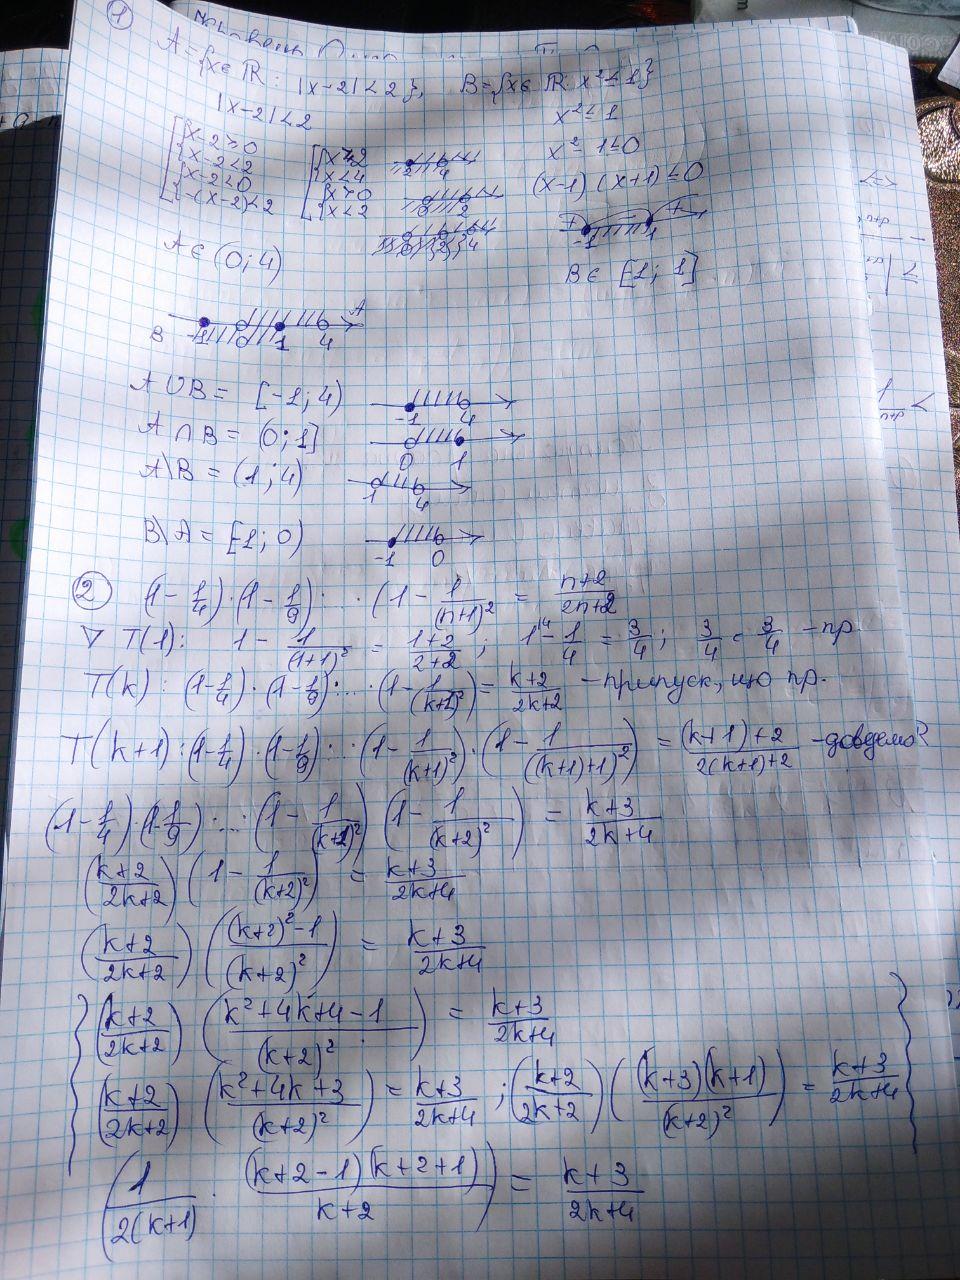 1
A = {x ∈ ℝ : |x-2| < 2}, B = {x ∈ ℝ: x² ≤ 1}
|x-2| < 2
x² ≤ 1
[{x-2 ≥ 0
x-2 < 2
{x-2 < 0
-(x-2) < 2
[{x ≥ 2
x < 4
{x > 0
x < 2
2 4
0 2
0 2 4
x² - 1 ≤ 0
(x-1)(x+1) ≤ 0
+ -1 1 +
A ∈ (0; 4)
B ∈ [-1; 1]
A
B -1 0 1 4
A ∪ B = [-1; 4)
-1 4
A ∩ B = (0; 1]
0 1
A\B = (1; 4)
1 4
B\A = [-1; 0)
-1 0
2 (1 - 1/4)·(1 - 1/9) ... (1 - 1/(n+1)²) = (n+2)/(2n+2)
∇ T(1): 1 - 1/(1+1)² = (1+2)/(2+2); 1 - 1/4 = 3/4; 3/4 = 3/4 - пр
T(k): (1-1/4)·(1-1/9)·...·(1-1/(k+1)²) = (k+2)/(2k+2) - припуск, що пр.
T(k+1): (1-1/4)·(1-1/9)·...(1-1/(k+1)²)·(1-1/((k+1)+1)²) = ((k+1)+2)/(2(k+1)+2) - доведемо?
(1-1/4)(1-1/9)·...·(1-1/(k+1)²)(1-1/(k+2)²) = (k+3)/(2k+4)
((k+2)/(2k+2))(1-1/(k+2)²) = (k+3)/(2k+4)
((k+2)/(2k+2))(((k+2)²-1)/(k+2)²) = (k+3)/(2k+4)
((k+2)/(2k+2))((k²+4k+4-1)/(k+2)²) = (k+3)/(2k+4)
((k+2)/(2k+2))((k²+4k+3)/(k+2)²) = (k+3)/(2k+4) ; ((k+2)/(2k+2))(((k+3)(k+1))/(k+2)²) = (k+3)/(2k+4)
(1/(2(k+1)) · ((k+2-1)(k+2+1))/(k+2)) = (k+3)/(2k+4)